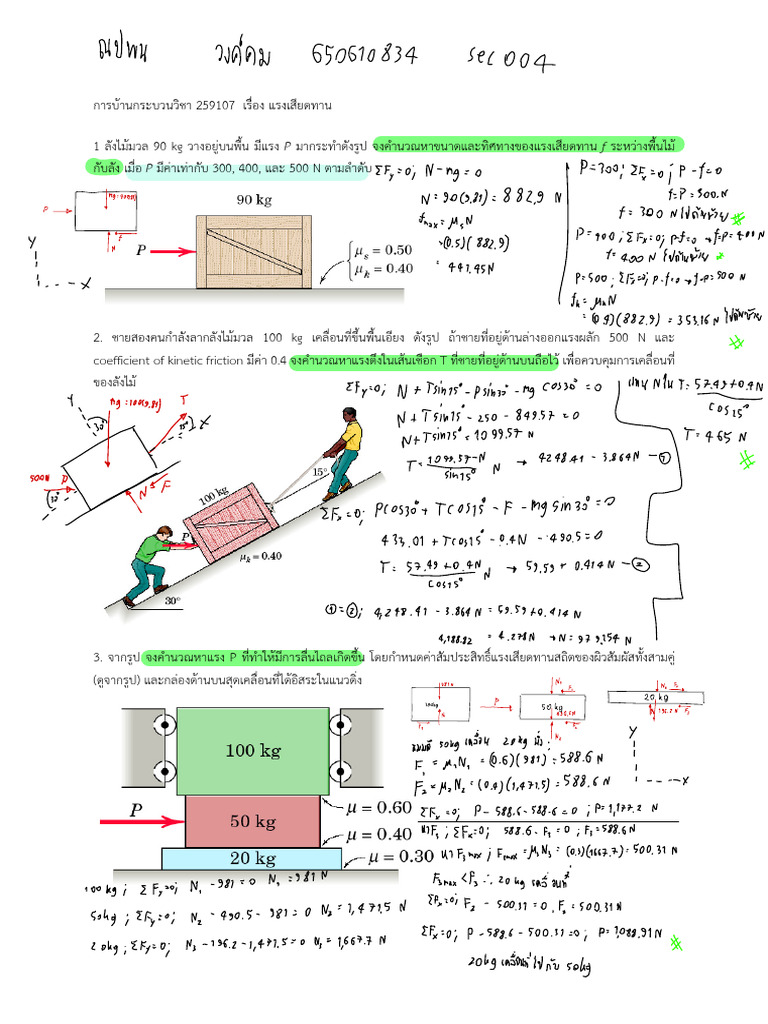 ณปพน วงค์คม 650610834 sec 004
การบ้านกระบวนวิชา 259107 เรื่อง แรงเสียดทาน
1 ลังไม้มวล 90 kg วางอยู่บนพื้น มีแรง P มากระทำดังรูป จงคำนวณหาขนาดและทิศทางของแรงเสียดทาน f ระหว่างพื้นไม้
กับลัง เมื่อ P มีค่าเท่ากับ 300, 400, และ 500 N ตามลำดับ
ΣFy=0; N - mg = 0
N = 90(9.81) = 882.9 N
fmax = μsN
=(0.5)(882.9)
= 441.45N
P=300; ΣFx=0; P-f=0
f=P=300.N
f = 300 N ไปด้านซ้าย
P=400; ΣFx=0; P-f=0 → f=P=400N
f=400N ไปด้านซ้าย
P=500; ΣFx=0; P-f=0 → f=P=500N
fk = μkN
=(0.4)(882.9) = 353.16 N ไปด้านซ้าย
P
N
f
Y
X
90 kg
P
μs = 0.50
μk = 0.40
2. ชายสองคนกำลังลากลังไม้มวล 100 kg เคลื่อนที่ขึ้นพื้นเอียง ดังรูป ถ้าชายที่อยู่ด้านล่างออกแรงผลัก 500 N และ
coefficient of kinetic friction มีค่า 0.4 จงคำนวณหาแรงดึงในเส้นเชือก T ที่ชายที่อยู่ด้านบนถือไว้ เพื่อควบคุมการเคลื่อนที่
ของลังไม้
Y
mg=100(9.81)
T
X
30°
15°
500N P
30°
N F
15°
100 kg
P
μk = 0.40
30°
ΣFy=0; N + Tsin15° - Psin30° - mg cos30° = 0
N + Tsin15° - 250 - 849.57 = 0
N + Tsin15° = 1099.57 N
T = 1099.57-N / sin15° N → 4248.41 - 3.864N - ①
ΣFx=0; Pcos30° + Tcos15° - F - mg sin30° = 0
433.01 + Tcos15° - 0.4N - 490.5 = 0
T = 57.49 + 0.4N / cos15° N → 59.59 + 0.414N - ②
①=②; 4,248.41 - 3.864N = 59.59 + 0.414N
4,188.82 = 4.278N → N = 979.154 N
แทน N ใน T = 57.49+0.4N / cos15°
T = 465 N
3. จากรูป จงคำนวณหาแรง P ที่ทำให้มีการลื่นไถลเกิดขึ้น โดยกำหนดค่าสัมประสิทธิ์แรงเสียดทานสถิตของผิวสัมผัสทั้งสามคู่
(ดูจากรูป) และกล่องด้านบนสุดเคลื่อนที่ได้อิสระในแนวดิ่ง
100 kg
P
50 kg
20 kg
μ = 0.60
μ = 0.40
μ = 0.30
100kg
981N
P
50 kg
20 kg
196.2 N
Y
X
สมมติ 50kg เคลื่อน 20kg นิ่ง
F1 = μ1N1 = (0.6)(981) = 588.6 N
F2 = μ2N2 = (0.4)(1,471.5) = 588.6 N
ΣFx=0; P - 588.6 - 588.6 = 0; P = 1,177.2 N
หา F3; ΣFx=0; 588.6 - F3 = 0; F3 = 588.6N
หา F3max; Fsmax = μ3N3 = (0.3)(1667.7) = 500.31 N
F3max < F3 ∴ 20 kg เคลื่อนที่
ΣFx=0; F2 - 500.31 = 0, F2 = 500.31N
ΣFx=0; P - 588.6 - 500.31 = 0; P = 1,088.91 N
20kg เคลื่อนที่ไปกับ 50kg
100 kg; ΣFy=0; N1 - 981 = 0 N1 = 981 N
50kg; ΣFy=0; N2 - 490.5 - 981 = 0 N2 = 1,471.5 N
20kg; ΣFy=0; N3 - 196.2 - 1,471.5 = 0 N3 = 1,667.7 N